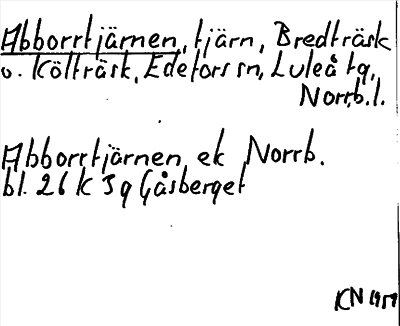 Abborrtjärnen, tjärn, Bredträsk
o. Költräsk, Edefors sn, Luleå tg,
Norrb. l.
Abborrtjärnen ek Norrb.
bl. 26 K 3 g Gåsberget
KN